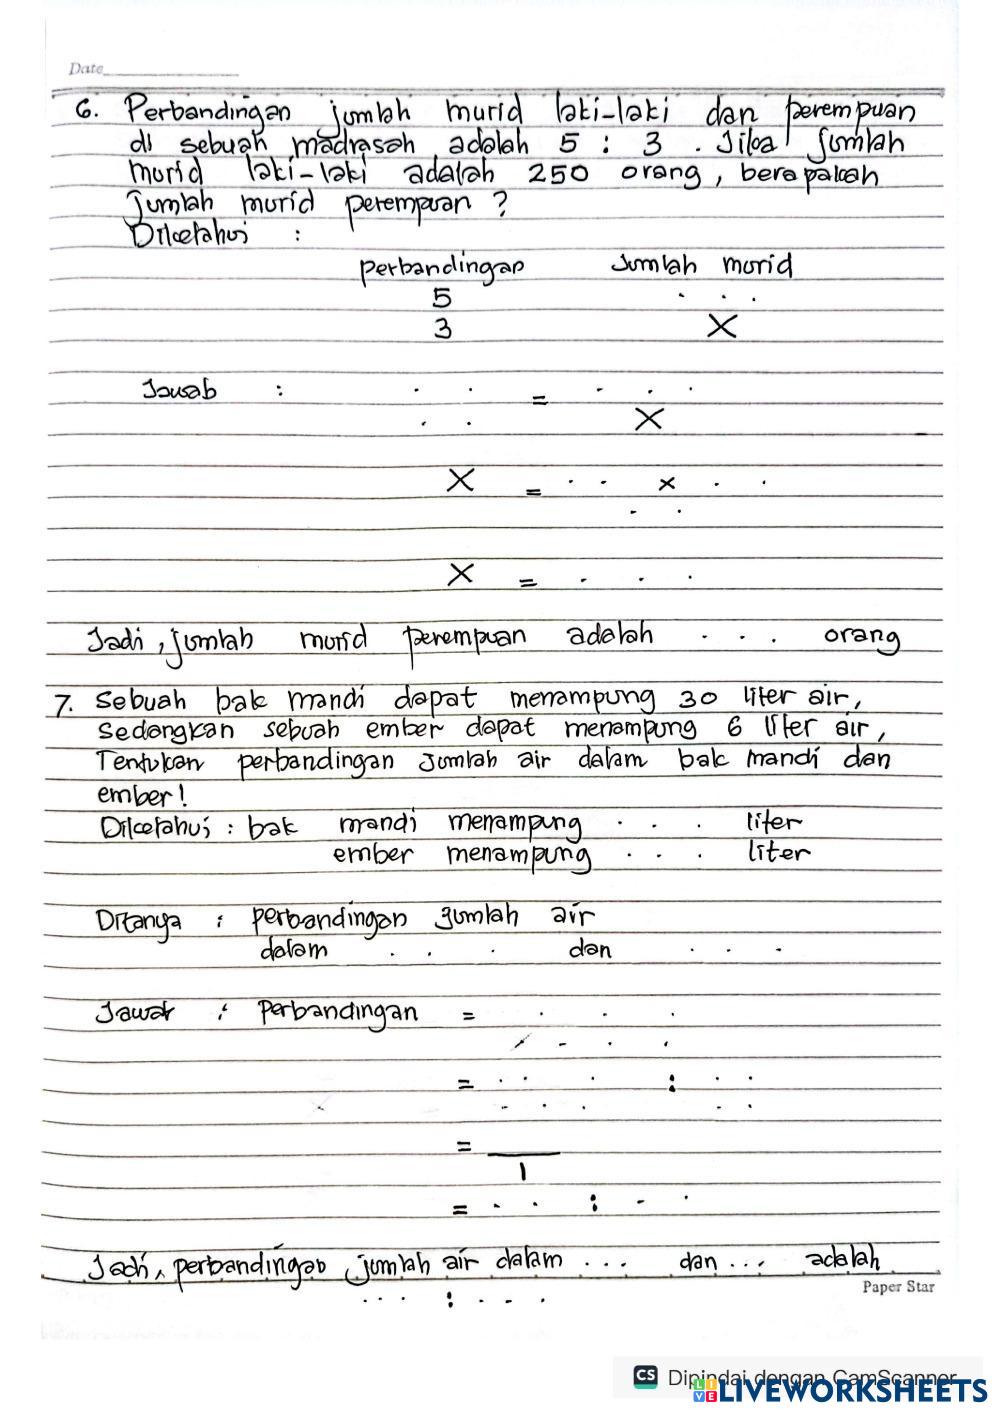 Date
6. Perbandingan jumlah murid laki-laki dan perempuan
di sebuah madrasah adalah 5 : 3 . Jika jumlah
murid laki-laki adalah 250 orang, berapakah
jumlah murid perempuan ?
Diketahui :
perbandingan Jumlah murid
5 . . .
3 X
Jawab : . . = . . .
. . X
X = . . x . .
. .
X = . . .
Jadi, jumlah murid perempuan adalah . . . orang
7. Sebuah bak mandi dapat menampung 30 liter air,
Sedangkan sebuah ember dapat menampung 6 liter air,
Tentukan perbandingan Jumlah air dalam bak mandi dan
ember!
Diketahui : bak mandi menampung . . . liter
ember menampung . . . liter
Ditanya : perbandingan jumlah air
dalam . . . dan . . .
Jawab : Perbandingan = . . .
. . .
= . . . : . .
. . . . .
=
1
= . . : . .
Jadi, perbandingan jumlah air dalam ... dan ... adalah
... : ...
Paper Star
CS Dipindai dengan CamScanner
LIVEWORKSHEETS